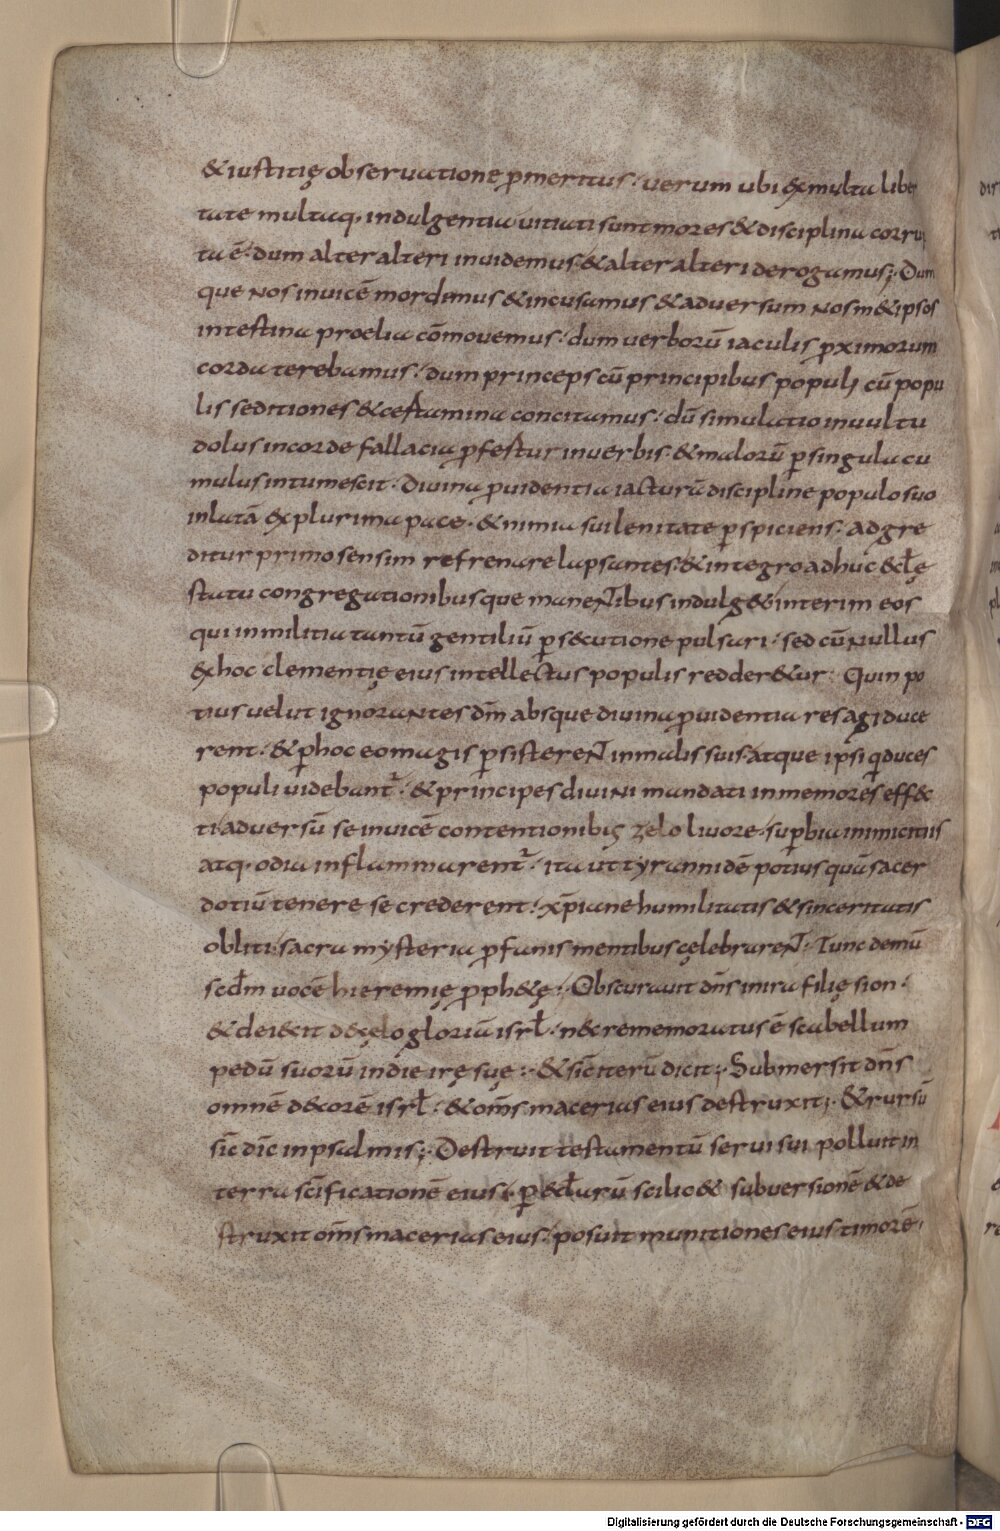 &iustitię obseruatione ꝑmeritus· uerum ubi exmulta liber
tate multaq· indulgentia uitiati sunt mores & disciplina corru
ta ē· dum alter alteri inuidemus· & alter alteri derogamus;· Dum
que nos inuicē mordemus & incusamus & aduersum nosm&ipsos
intestina proelia cōmouemus· dum uerborū iaculis ꝓximorum
corda terebamus· dum princeps cū principibus populi cū popu
lis seditiones & certamina concitamus· dū simulatio inuultu
dolus incorde fallacia ꝓfertur inuerbis· & malorū ꝑ singula cu
mulus intumescit· Diuina ꝓuidentia iacturā discipline populo suo
inlatā ex plurima pace· & nimia sui lenitate ꝑspiciens· adgre
ditur primo sensim refrenare lapsantes· & integro adhuc &cłę
statu congregationibusque manentibus indulg& interim eos
qui in militia tantū gentiliū ꝑs&cutione pulsari· sed cū nullus
ex hoc clementię eius intellectus populis redder&ur· Quin po
tius uelut ignorantes dm̄ absque diuina ꝓuidentia res agi duce
rent· & ꝑ hoc eo magis ꝑsisterent in malis suis· atque ipsi q̇ duces
populi uidebant̄· & principes diuini mandati inmemores eff&c
ti aduersū se inuicē contentionibꝰ zelo liuore· suꝑbia inimicitiis
atq· odia inflammarent̄· ita ut tyrannidē potius quā sacer
dotiū tenere se crederent· xp̄iane humilitatis & sinceritatis
obliti· sacra mysteria ꝓfanis mentibus cęlebrarent· Tunc demū
scd̄m uocē hieremię ꝓph&ę· Obscurauit dn̄s in ira filię sion·
& deiecit de cęlo gloriā isrł· nec rememoratus ē scabellum
pedū suorū in die irę suę· & sic iterū dicit;· Submersit dn̄s
omnē decorē isrł· & om̄s macerias eius destruxit;· & rursū
sic dic̄ in psalmis;· Destruit testamentū serui sui polluit in
terra sc̄ificationē eius· ꝑ &cłarū scilic& subuersionē & de
struxit om̄s macerias eius· posuit munitiones eius timorē·
Digitalisierung gefördert durch die Deutsche Forschungsgemeinschaft - DFG